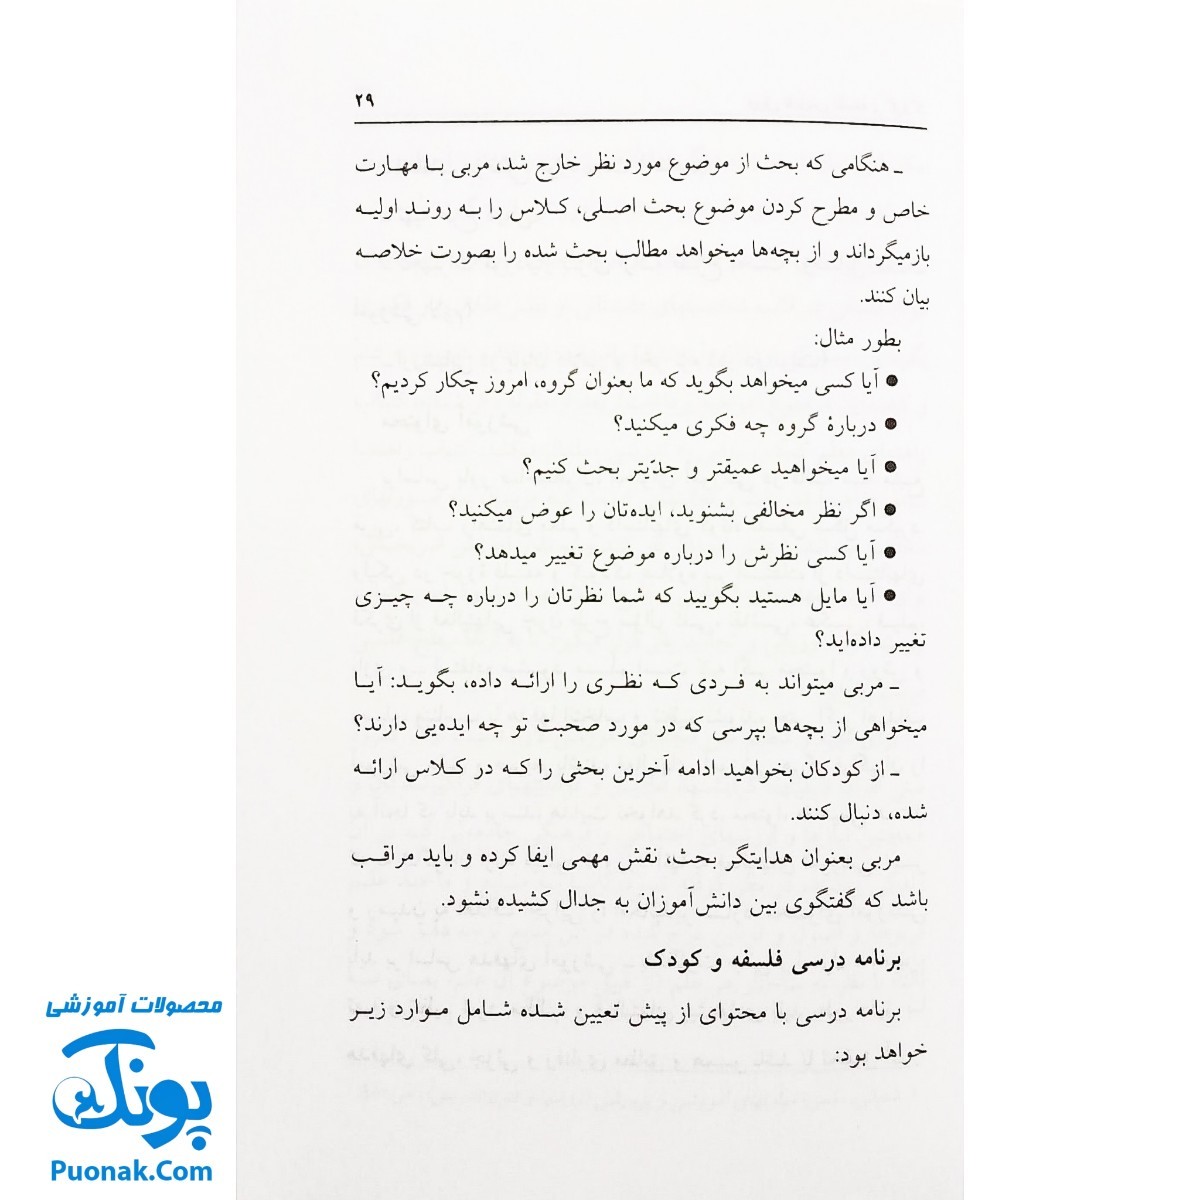 ۲۹
ـ هنگامی که بحث از موضوع مورد نظر خارج شد، مربی با مهارت
خاص و مطرح کردن موضوع بحث اصلی، کلاس را به روند اولیه
بازمیگرداند و از بچه‌ها میخواهد مطالب بحث شده را بصورت خلاصه
بیان کنند.
بطور مثال:
● آیا کسی میخواهد بگوید که ما بعنوان گروه، امروز چکار کردیم؟
● دربارهٔ گروه چه فکری میکنید؟
● آیا میخواهید عمیقتر و جدّیتر بحث کنیم؟
● اگر نظر مخالفی بشنوید، ایده‌تان را عوض میکنید؟
● آیا کسی نظرش را درباره موضوع تغییر میدهد؟
● آیا مایل هستید بگویید که شما نظرتان را درباره چه چیزی
تغییر داده‌اید؟
ـ مربی میتواند به فردی که نظری را ارائه داده، بگوید: آیا
میخواهی از بچه‌ها بپرسی که در مورد صحبت تو چه ایده‌یی دارند؟
ـ از کودکان بخواهید ادامه آخرین بحثی را که در کلاس ارائه
شده، دنبال کنند.
مربی بعنوان هدایتگر بحث، نقش مهمی ایفا کرده و باید مراقب
باشد که گفتگوی بین دانش‌آموزان به جدال کشیده نشود.
برنامه درسی فلسفه و کودک
برنامه درسی با محتوای از پیش تعیین شده شامل موارد زیر
خواهد بود:
محصولات آموزشی
پونک
Puonak.Com